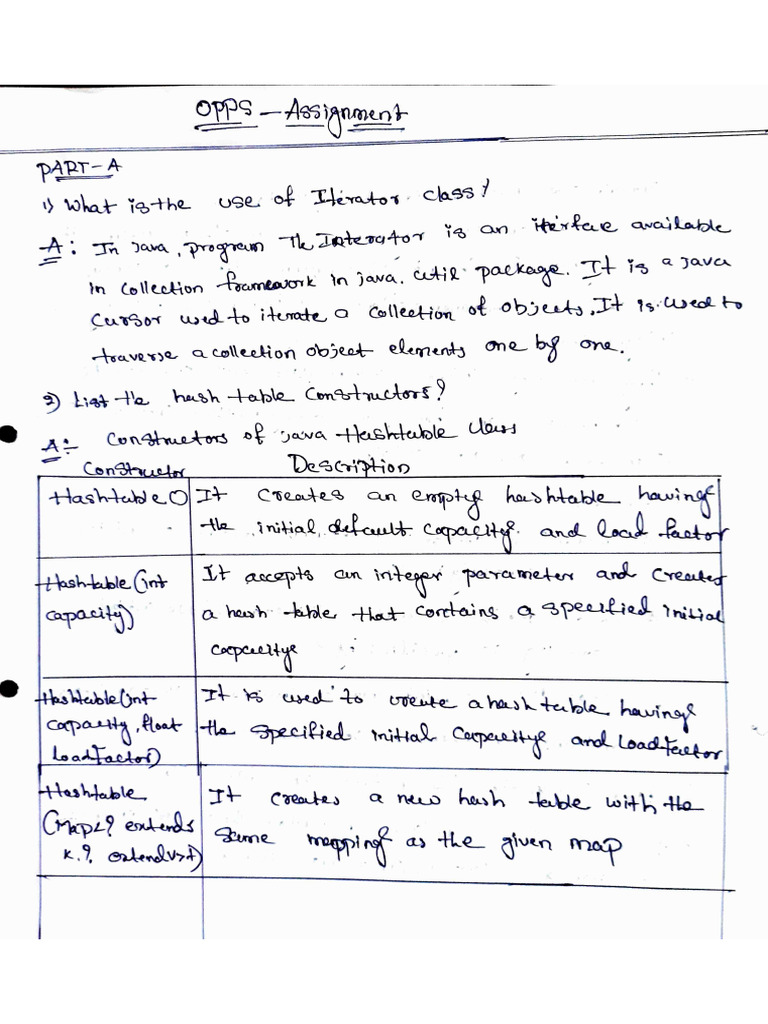 OPPS - Assignment
PART-A
1) What is the use of Iterator class?
A: In Java, program The Interator is an iterface available
in collection framework in java. util package. It is a java
Cursor used to iterate a collection of objects. It is used to
traverse a collection object elements one by one.
2) List the hash table Constructors?
A:- Constructors of java Hashtable class
Constructor Description
Hashtable() It creates an empty hashtable having
the initial default capacity and load factor
Hashtable(int It accepts an integer parameter and creates
capacity) a hash table that contains a specified initial
capacity
Hashtable(int It is used to create a hash table having
capacity, float the specified initial capacity and loadfactor
LoadFactor)
Hashtable It creates a new hash table with the
(Map<? extends same mapping as the given map
K.? extend V>t)